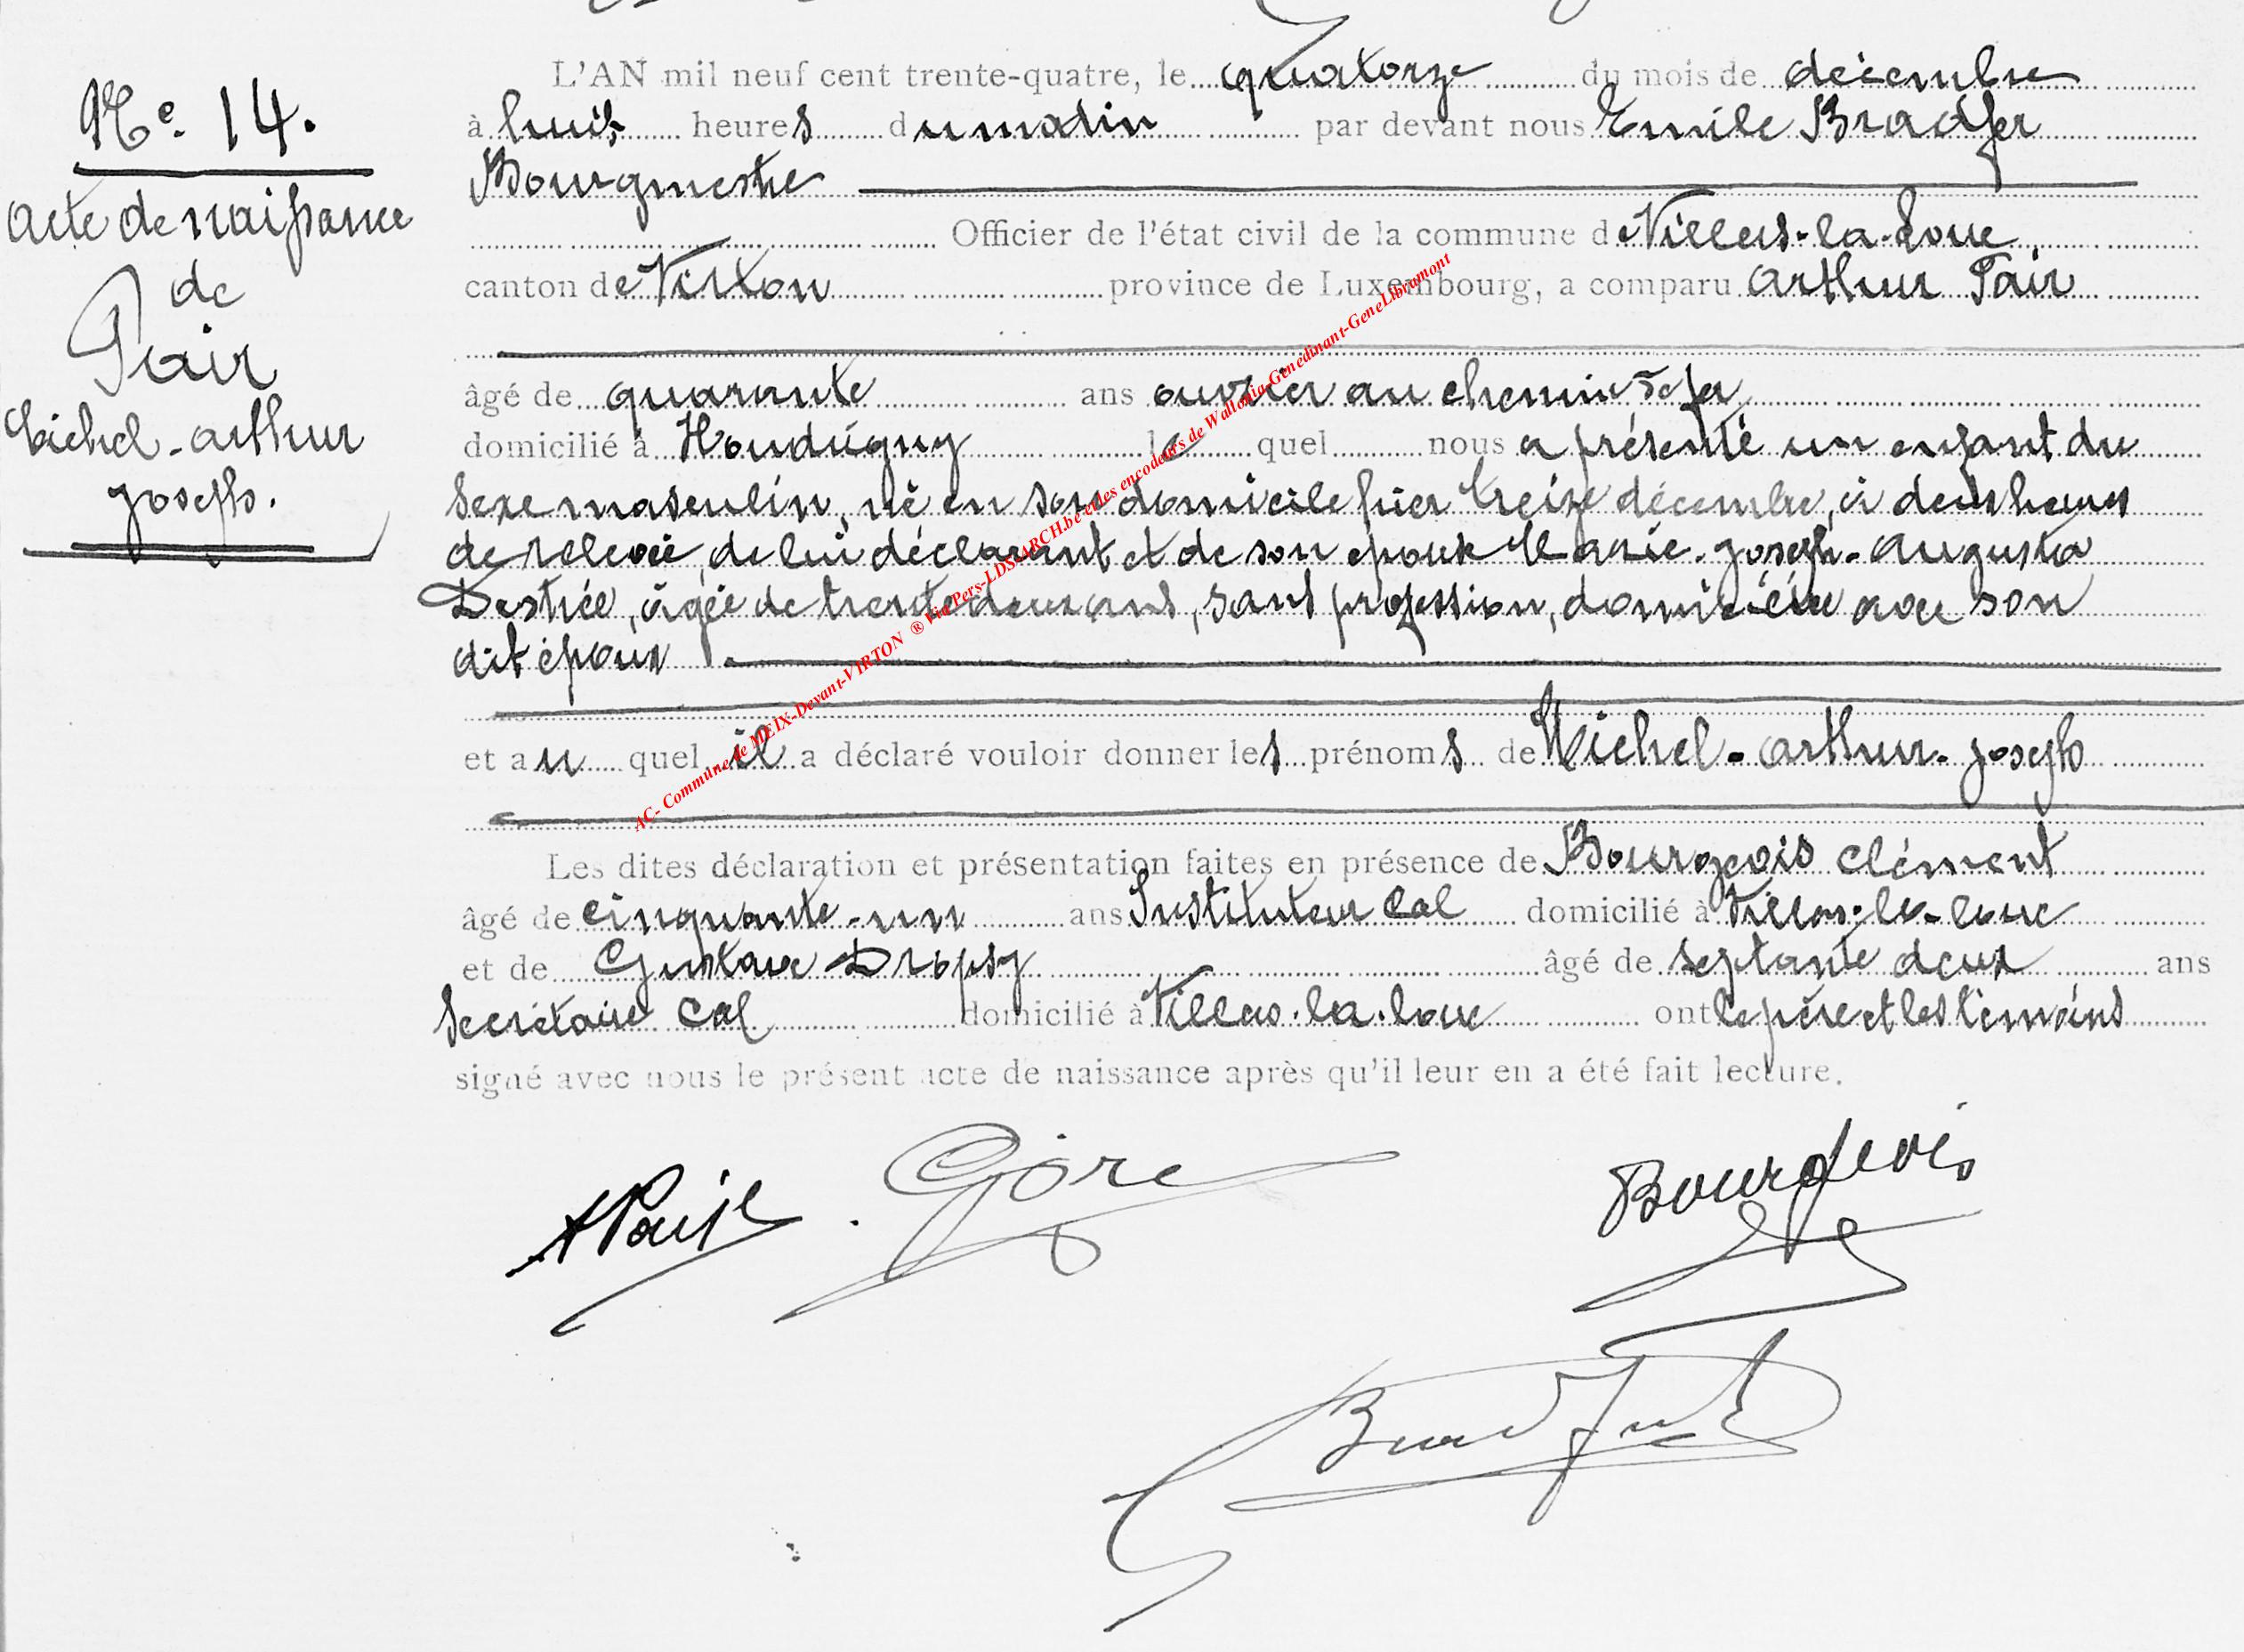 N° 14.
Acte de naissance
de
Pair
Michel-Arthur
Joseph.
L'AN mil neuf cent trente-quatre, le quatorze du mois de décembre
à huit heures du matin par devant nous Emile Bradfer
Bourgmestre
Officier de l'état civil de la commune de Villers-la-Loue,
canton de Virton province de Luxembourg, a comparu Arthur Pair
âgé de quarante ans ouvrier au chemin de fer
domicilié à Houdrigny lequel nous a présenté un enfant du
sexe masculin, né en son domicile hier treize décembre, à deux heures
de relevée, de lui déclarant et de son épouse Marie-Joseph-Augusta
Destrée, âgée de trente deux ans, sans profession, domiciliée avec son
dit époux
et au quel il a déclaré vouloir donner les prénoms de Michel-Arthur-Joseph
Les dites déclaration et présentation faites en présence de Bourgeois Clément
âgé de cinquante-un ans Instituteur Cal domicilié à Villers-la-Loue
et de Gustave Dropsy âgé de septante deux ans
Secrétaire Cal domicilié à Villers-la-Loue ont le père et les témoins
signé avec nous le présent acte de naissance après qu'il leur en a été fait lecture.
Bourgeois
AC- Commune de MEIX-Devant-VIRTON ® Via Pers-LDSEARCH.be et les encodeurs de Wallonia-Genedinant-GeneLibramont